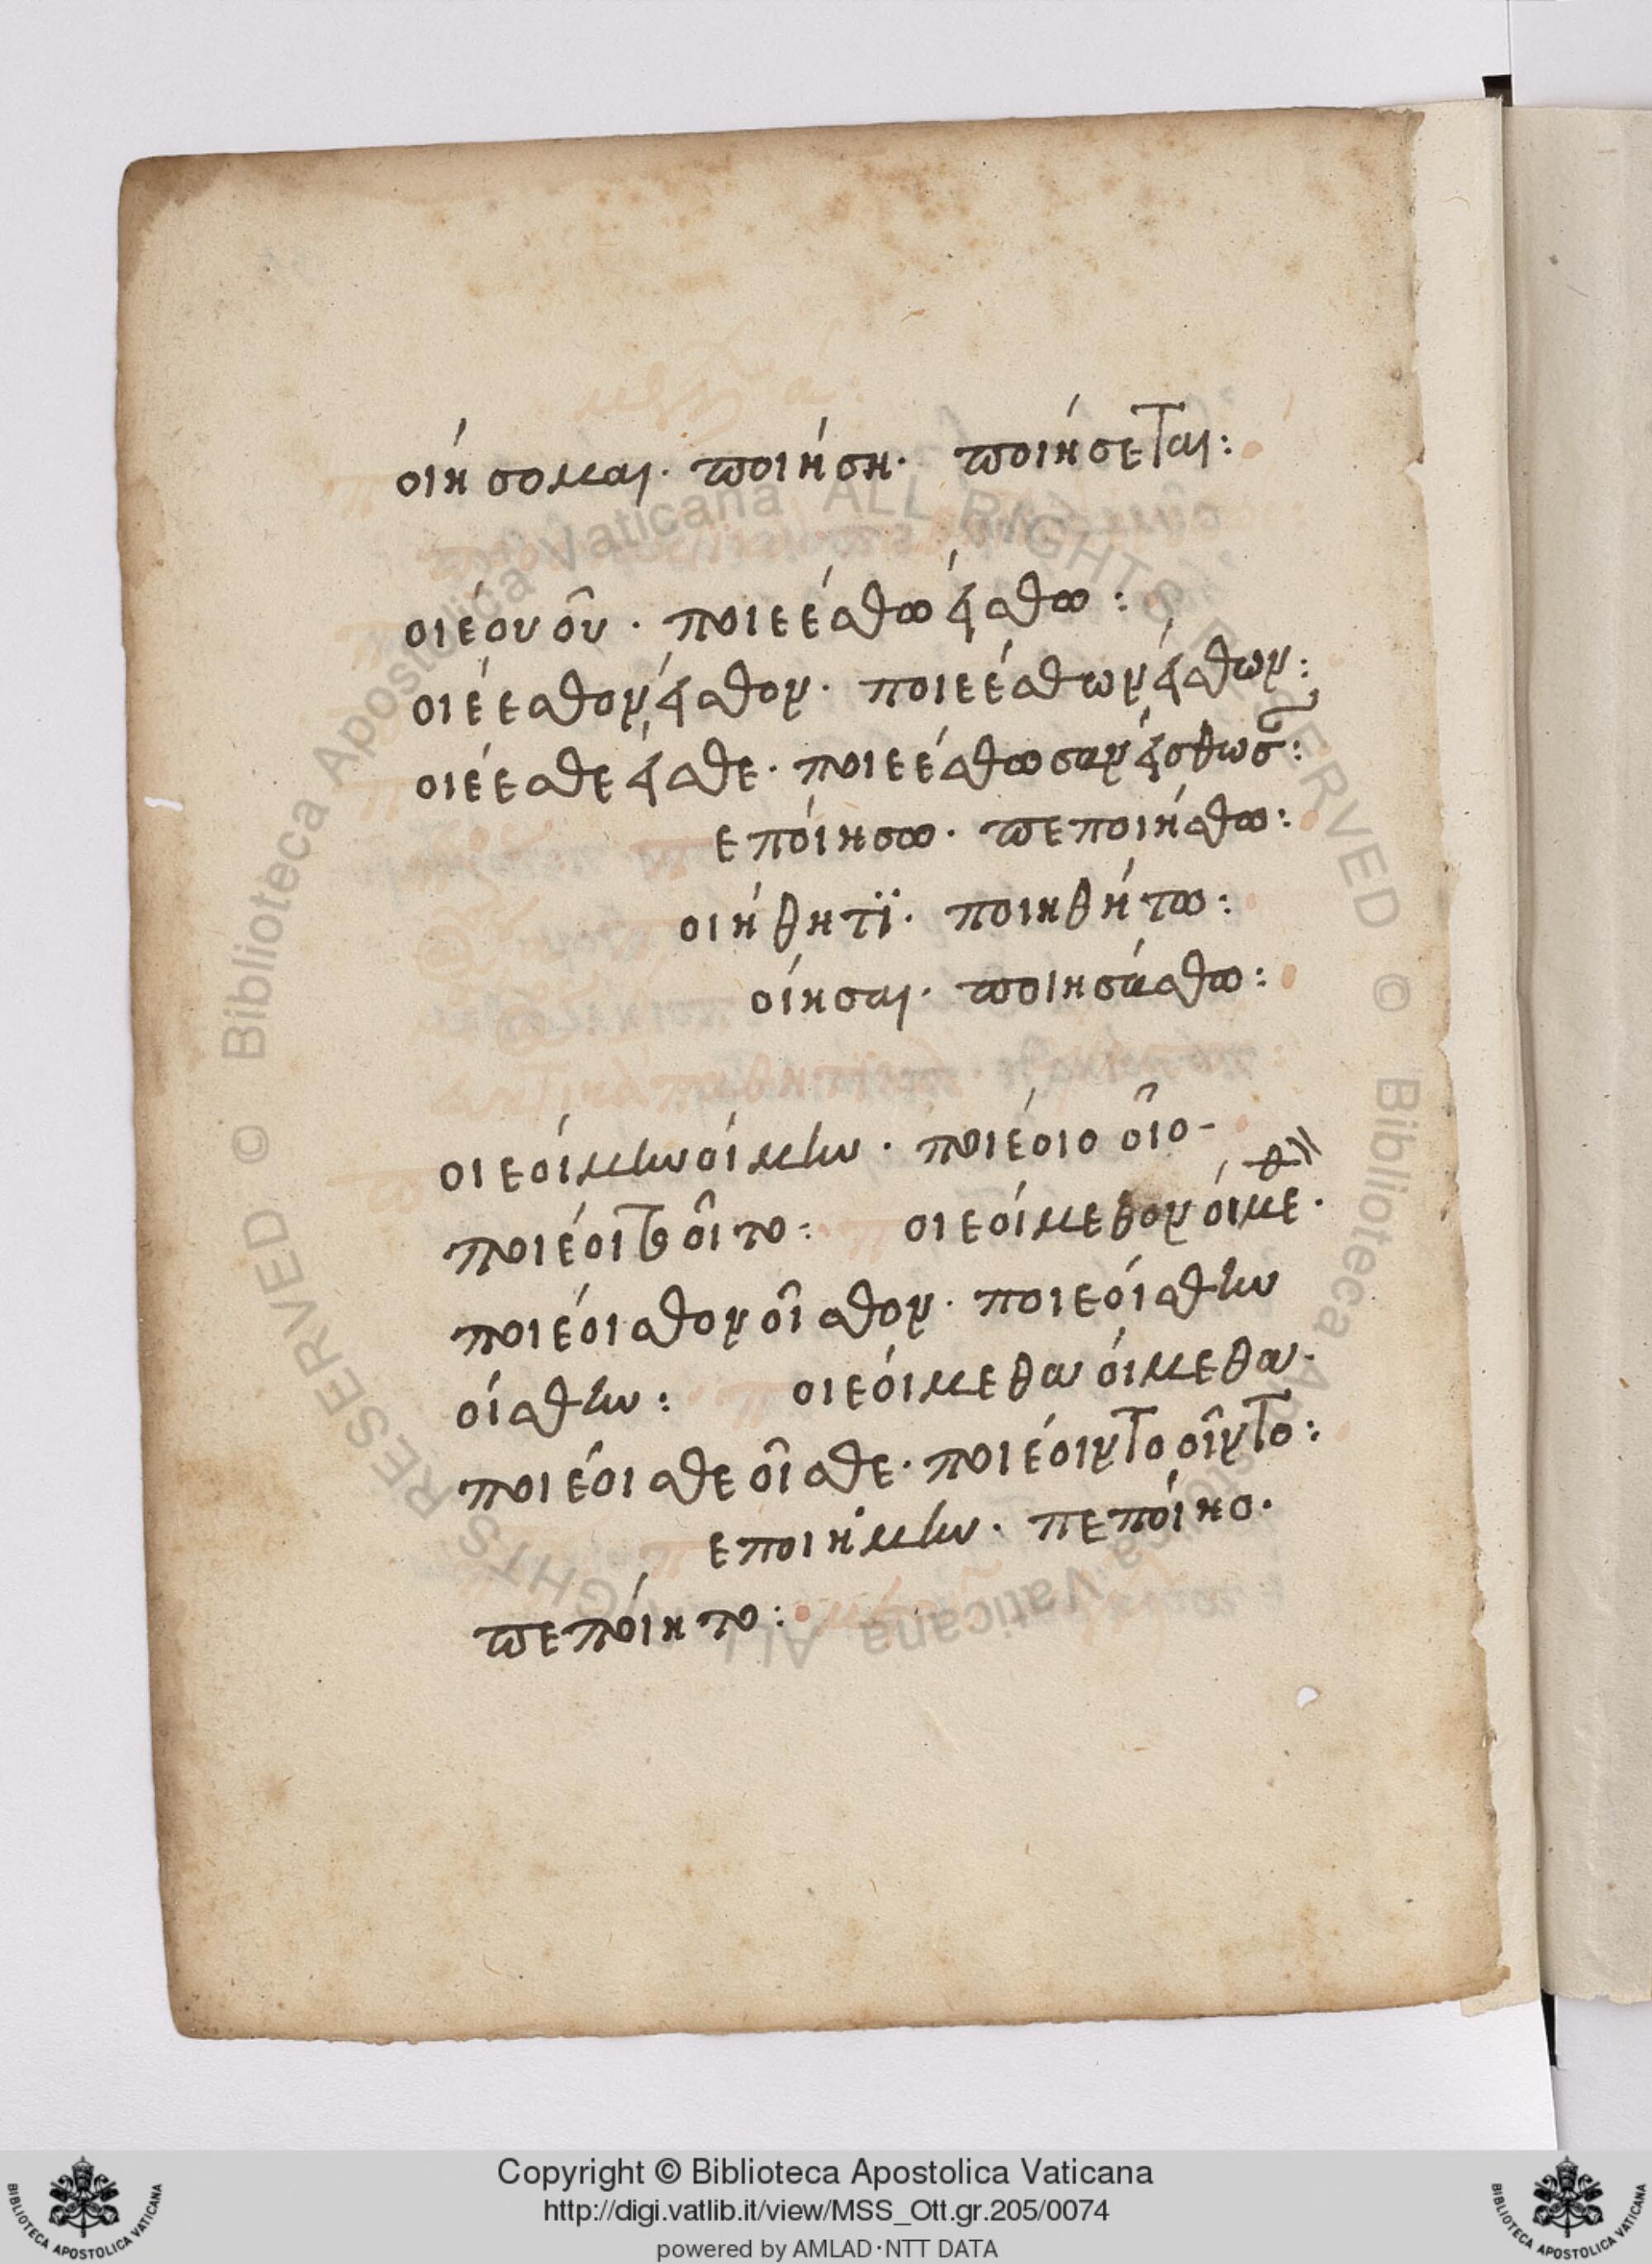 οιήσομαι· ποιήση· ποιήσεται:
οιέου οῦ· ποιεέσθω έσθω:
οιέεσθον έσθον· ποιεέσθων έσθων:
οιέεσθε έσθε· ποιεέσθωσαν έσθωσ:
εποίησω· πεποιήσθω:
οιήθητϊ· ποιηθήτω:
οίησαι· ποιησάσθω:
οιεοίμην οίμην· ποιέοιο οῖο-
ποιέοιτο οῖτο: οιεοίμεθον οίμεθ·
ποιέοισθον οῖσθον· ποιεοίσθην
οίσθην: οιεοίμεθα οίμεθα·
ποιέοισθε οῖσθε· ποιέοιντο οῖντο:
εποιήμην· πεποίησ·
πεποίητο:
Biblioteca Apostolica Vaticana ALL RIGHTS RESERVED ©
Biblioteca Apostolica Vaticana ALL RIGHTS RESERVED ©
Copyright © Biblioteca Apostolica Vaticana
http://digi.vatlib.it/view/MSS_Ott.gr.205/0074
powered by AMLAD·NTT DATA
BIBLIOTECA APOSTOLICA VATICANA
BIBLIOTECA APOSTOLICA VATICANA